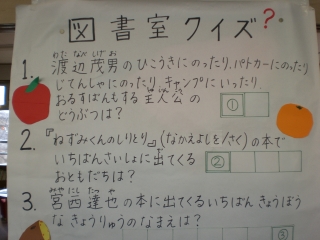 図書室クイズ?
わた なべ しげ お
1. 渡辺茂男のひこうきにのったり、パトカーにのったり
じてんしゃにのったり、キャンプにいったり
おるすばんもする主人公の
どうぶつは?
①
2. 『ねずみくんのしりとり』(なかえよしを/さく)の本で
いちばんさいしょに出てくる
おともだちは?
②
みや にし たつ や
3. 宮西達也の本に出てくるいちばんきょうぼう
なきょうりゅうのなまえは?
③